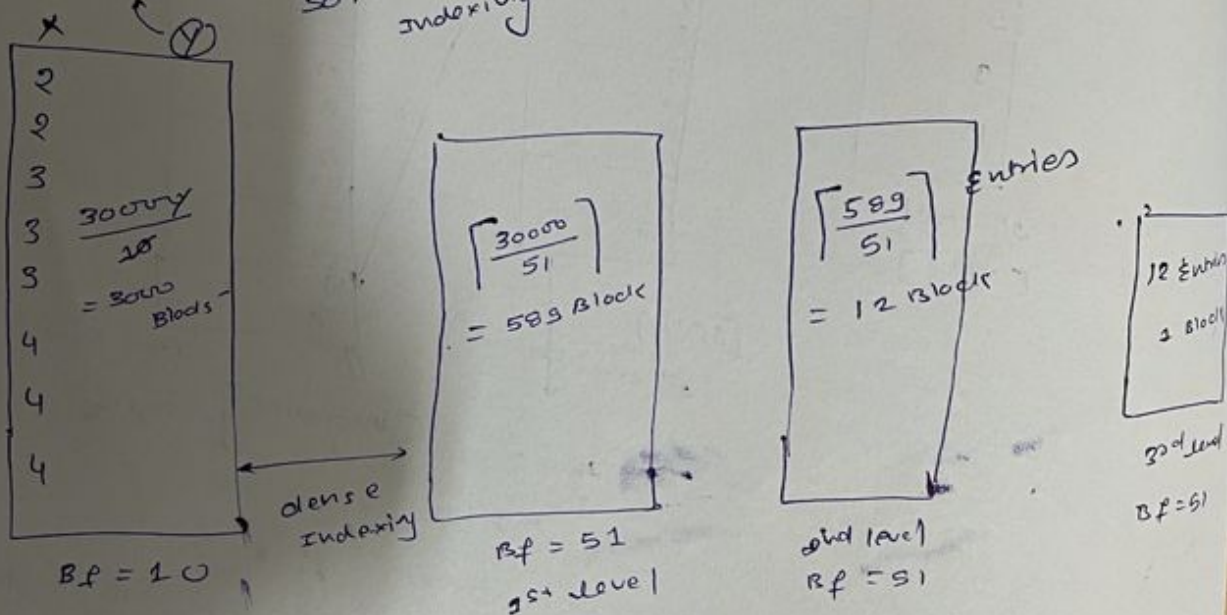 Indexing
X
Y
2
2
3
3
3
4
4
4
30000
10
= 3000
Blocks
Bf = 10
dense
Indexing
⌈30000
51⌉
= 589 Block
Bf = 51
1st level
⌈589
51⌉
Entries
= 12 Block
2nd level
Bf = 51
12 Entri
1 Block
3rd level
Bf = 51